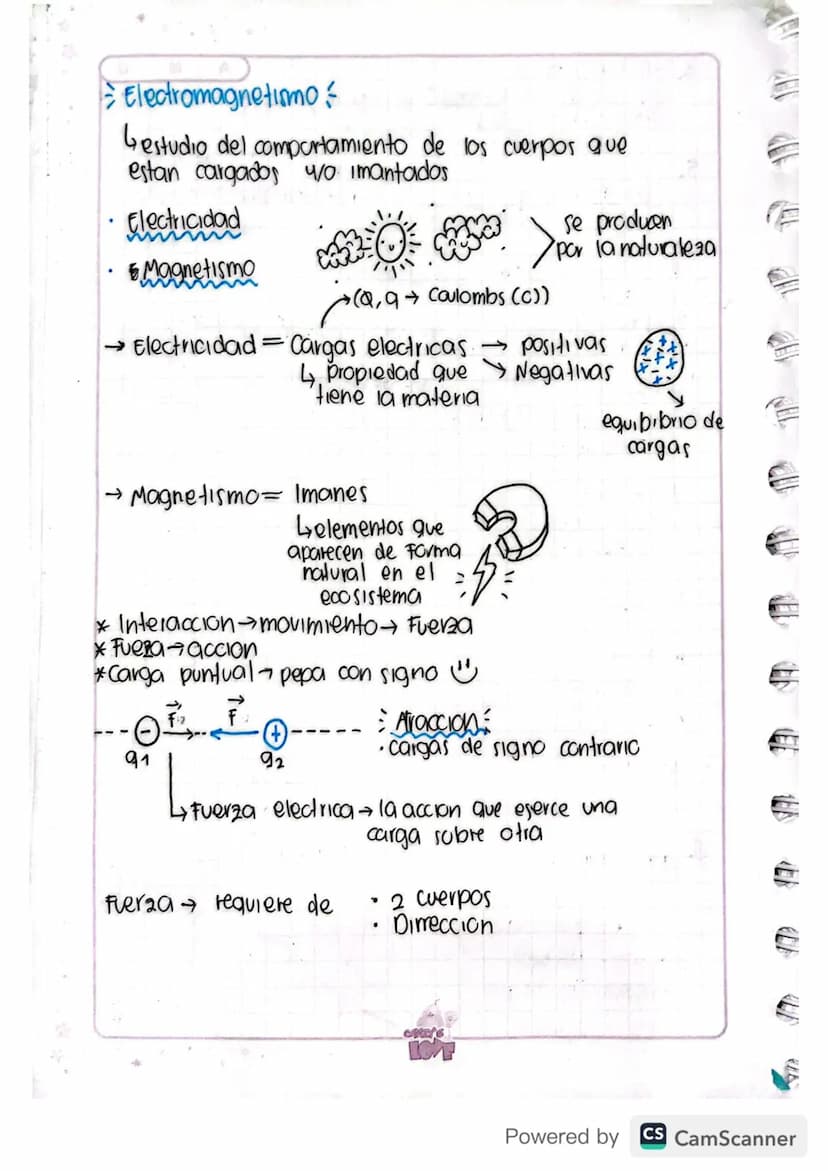 Electromagnetismo
↳ estudio del comportamiento de los cuerpos que
estan cargados y/o imantados
· Electricidad
· Magnetismo
se producen
por la naturaleza
(Q, q → Coulombs (C))
→ Electricidad = Cargas electricas → positivas
↳ Propiedad que → Negativas
tiene la materia
equibibrio de
cargas
→ Magnetismo = Imanes
↳ elementos que
aparecen de Forma
natural en el
ecosistema
* Interaccion → movimiento → Fuerza
* Fueza → accion
* Carga puntual → pepa con signo
F F
- +
q1 q2
Atraccion
· cargas de signo contrario
↳ Fuerza electrica → la accion que eserce una
carga sobre otra
Fuerza → requiere de · 2 cuerpos
· Dirreccion
LOVE
Powered by CS CamScanner